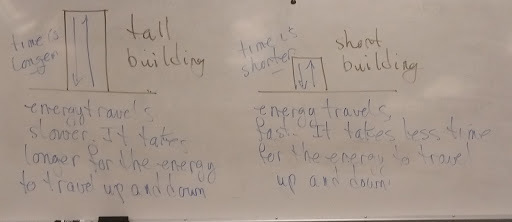 time is
longer
tall
building
energy travels
slower. It takes
longer for the energy
to travel up and down
time is
shorter
short
building
energy travels
fast. It takes less time
for the energy to travel
up and down